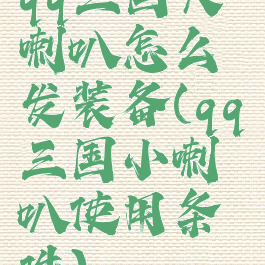 qq三国大
喇叭怎么
发装备(qq
三国小喇
叭使用条